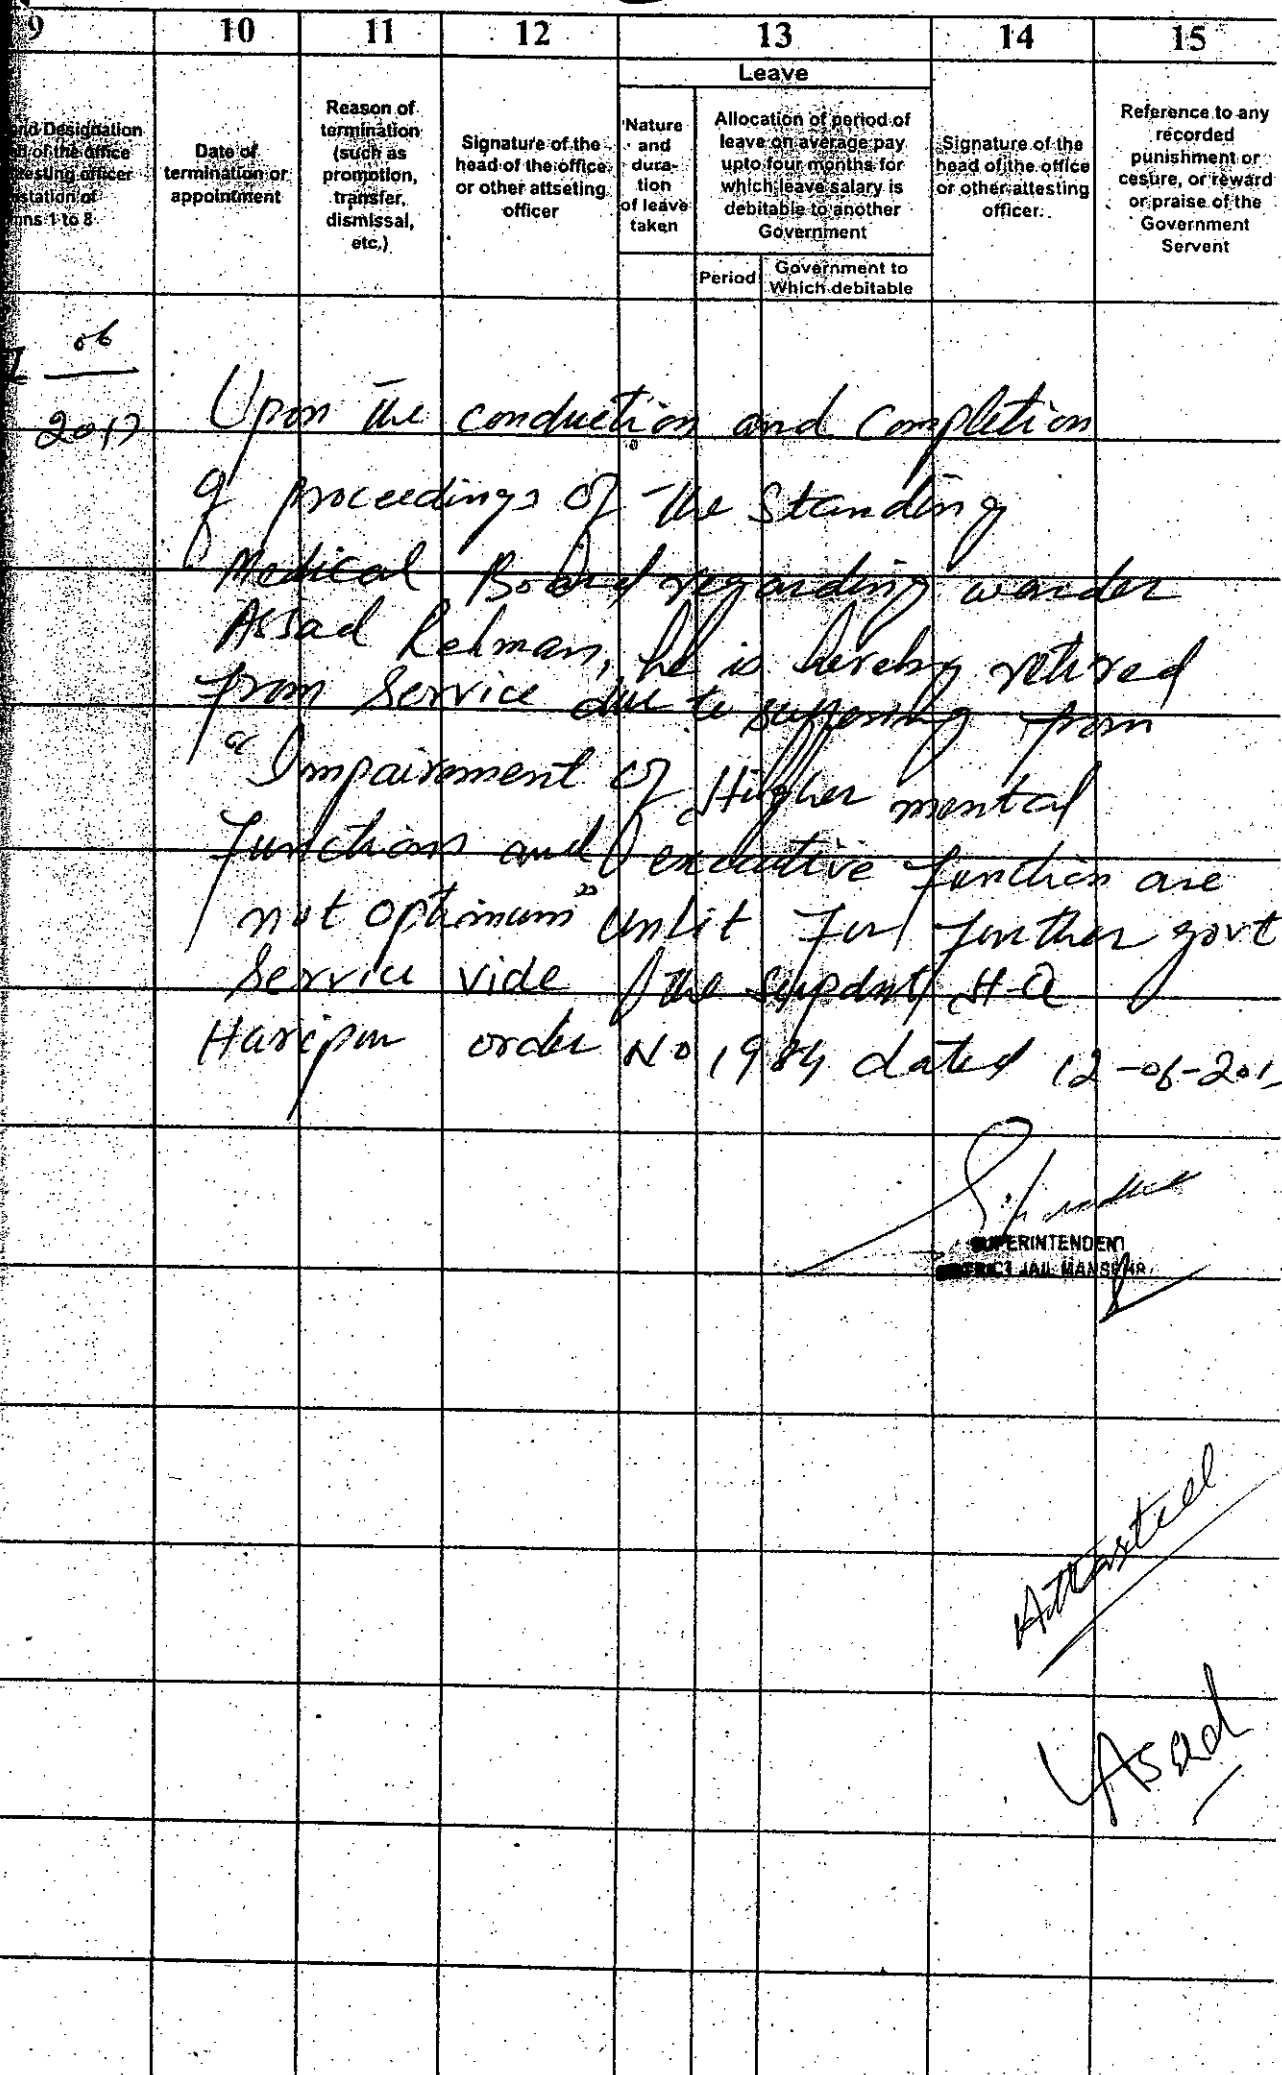 9 10 11 12 13 14 15
Leave
and Designation
of the office
attesting officer
of
1 to 8
Date of
termination or
appointment
Reason of
termination
(such as
promotion,
transfer,
dismissal,
etc.)
Signature of the
head of the office
or other attseting
officer
Nature
and
dura-
tion
of leave
taken
Allocation of period of
leave on average pay
upto four months for
which leave salary is
debitable to another
Government
Period
Government to
Which debitable
Signature of the
head of the office
or other attesting
officer.
Reference to any
recorded
punishment or
cesure, or reward
or praise of the
Government
Servent
06
2017
Upon the conduction and Completion
of proceedings of the Standing
Medical Board regarding warder
Assad Rehman, he is hereby retired
from Service due to suffering from
"Impairement of Higher mental
Functions and executive function are
not optimum" Unfit For further govt
Service vide the Supdnt H-Q
Haripur order No 1984 dated 12-06-201
SUPERINTENDENT
JAIL MANSEHR
Attasted
Asad